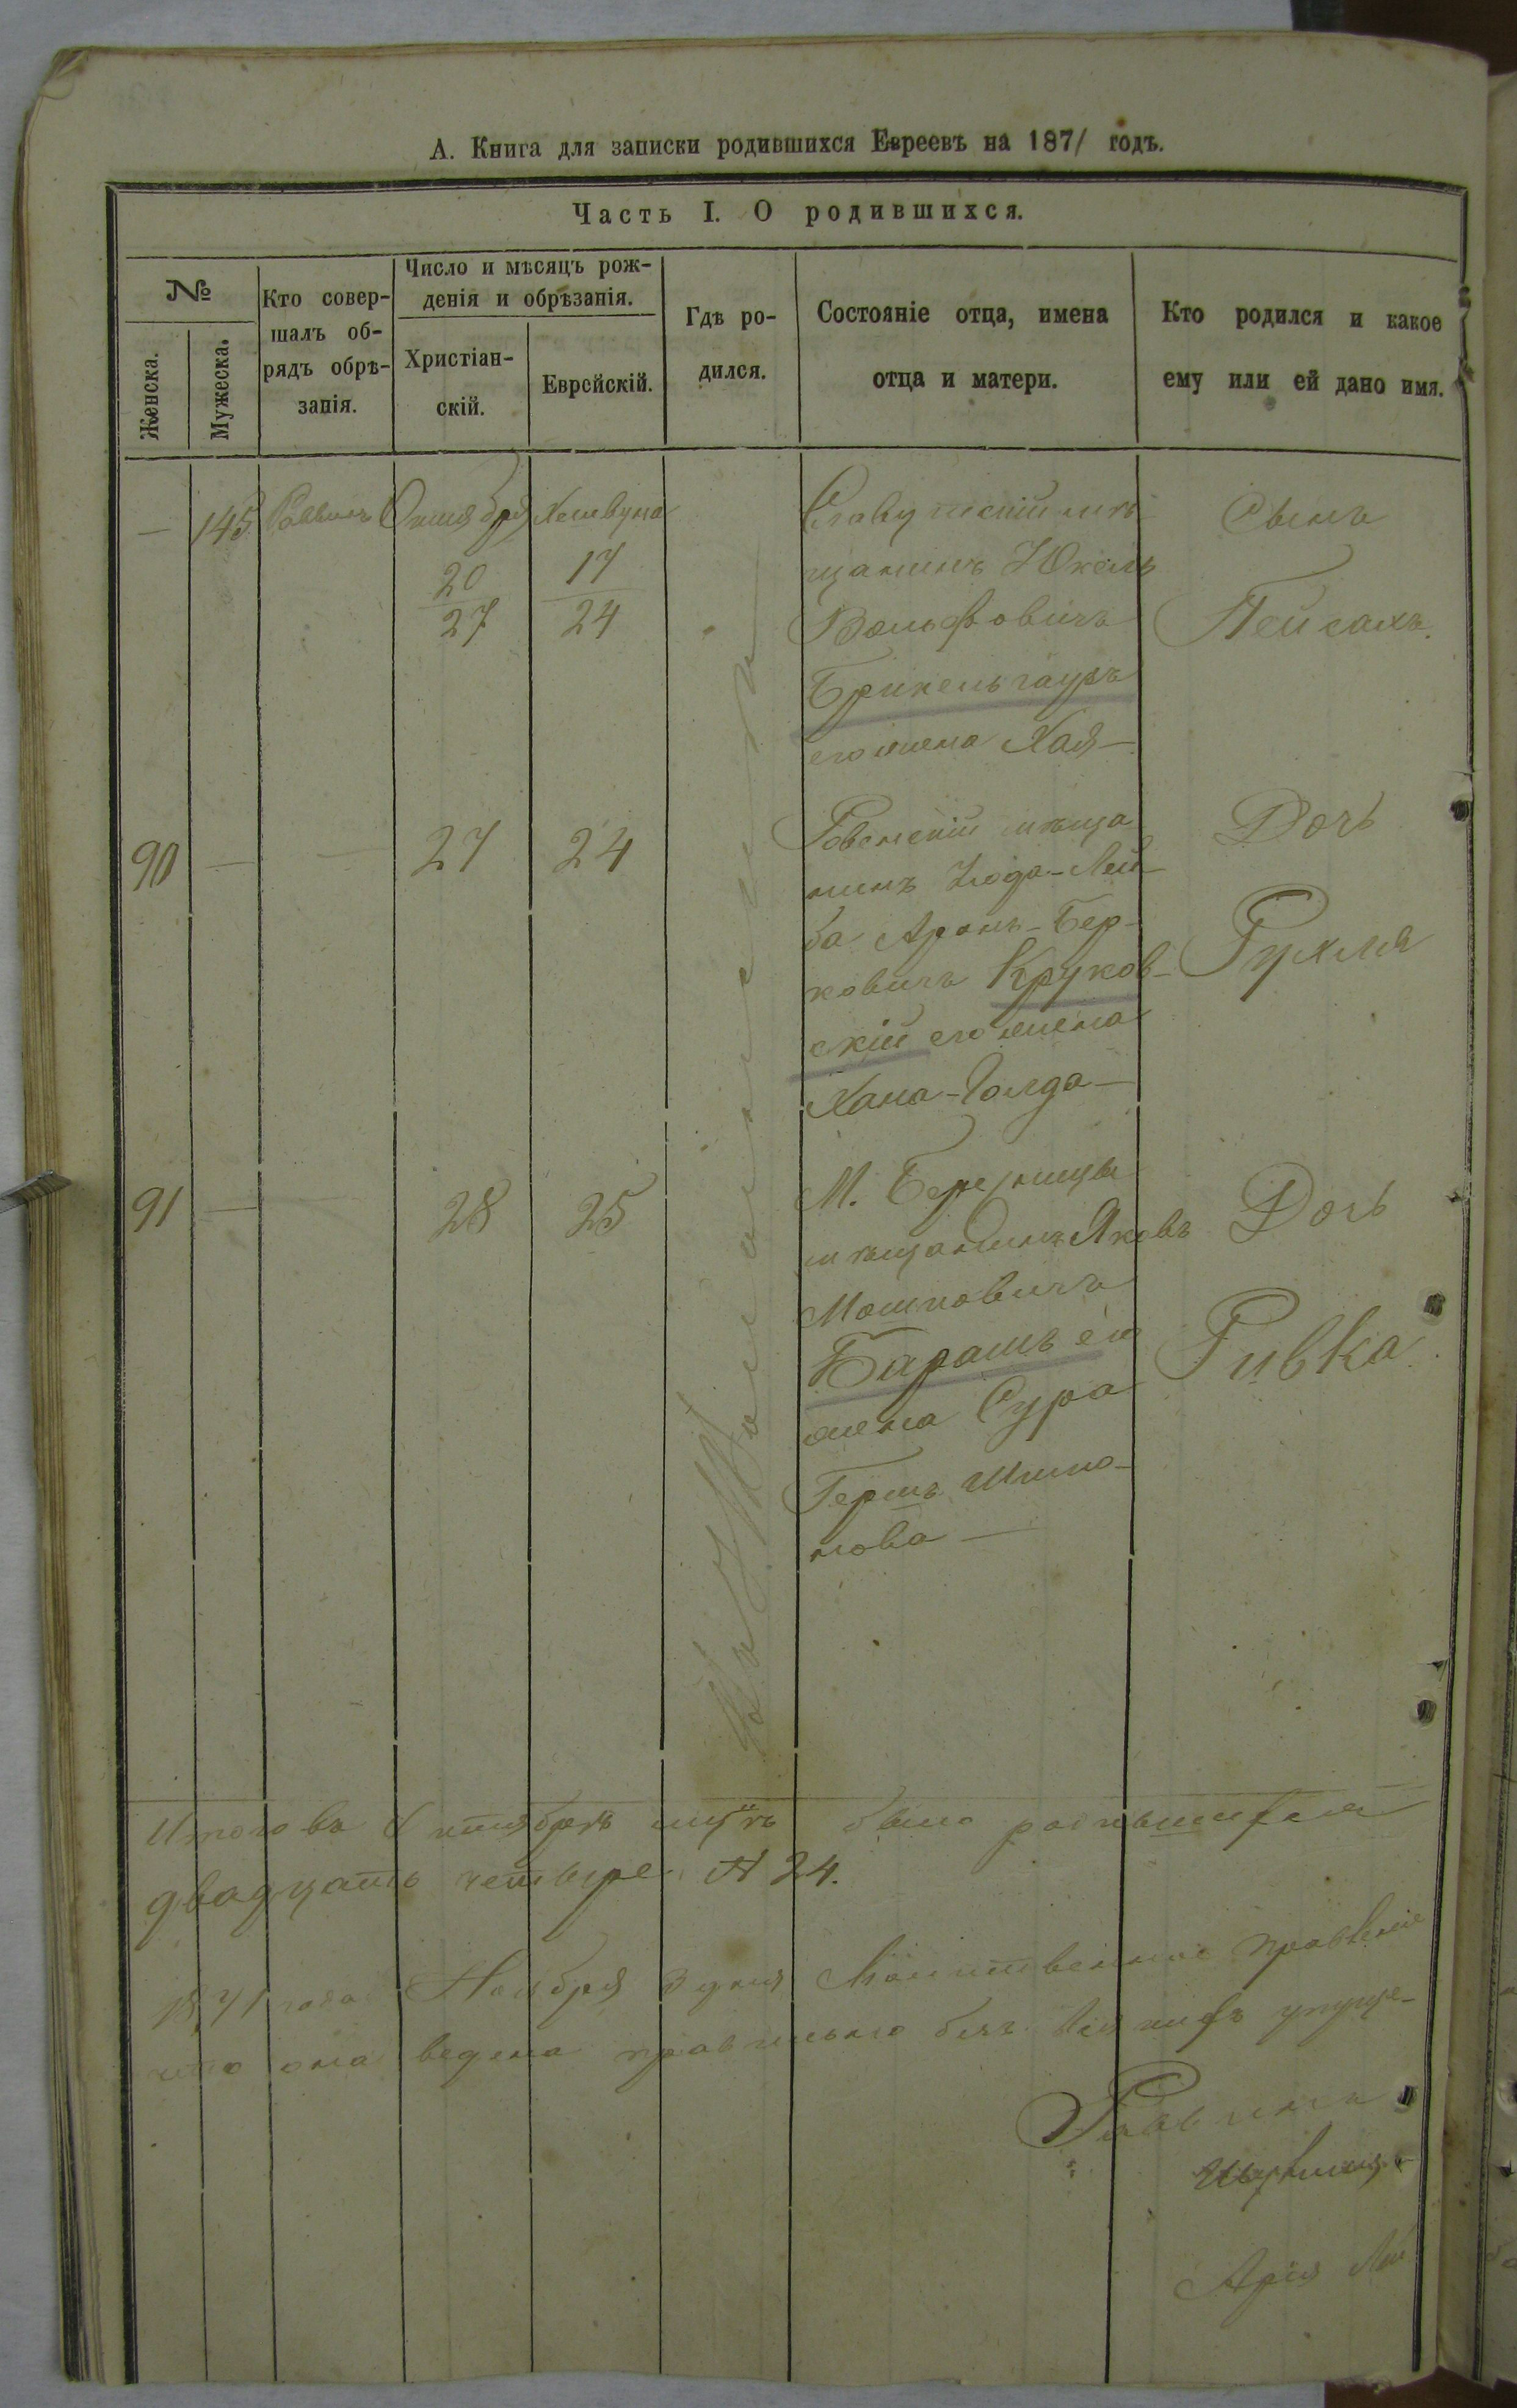 А. Книга для записки родившихся Евреевъ на 1871 годъ.
Часть I. О родившихся.
№
Женска.
Мужеска.
Кто совер-
шалъ об-
рядъ обрѣ-
занія.
Число и мѣсяцъ рож-
денія и обрѣзанія.
Христіан-
скій.
Еврейскій.
Гдѣ ро-
дился.
Состояніе отца, имена
отца и матери.
Кто родился и какое
ему или ей дано имя.
— 145 Раввинъ Октября Хешвуна
20 17
27 24
Славутскій мѣ-
щанинъ Юкель
Вольфовичъ
его жена Хая —
Сынъ
Пейсахъ.
90 — — 27 24
Ровенскій мѣща
нинъ Іюда-Лей-
ба Аронъ-Бер-
ковичъ Круков-
скій его жена
Хана-Голда —
Дочь
Рухля
91 — — 28 25
М. Березницы
мѣщанинъ Яковъ
Мошковичъ
Барашъ его
жена Сура
Гершъ
нова —
Дочь
Ривка
Итого въ Октябрѣ м-цѣ было родившихся
двадцать четыре № 24.
1871 года Ноября 3 дня правленіе
что она ведена правильно безъ всякихъ упуще-
Раввинъ